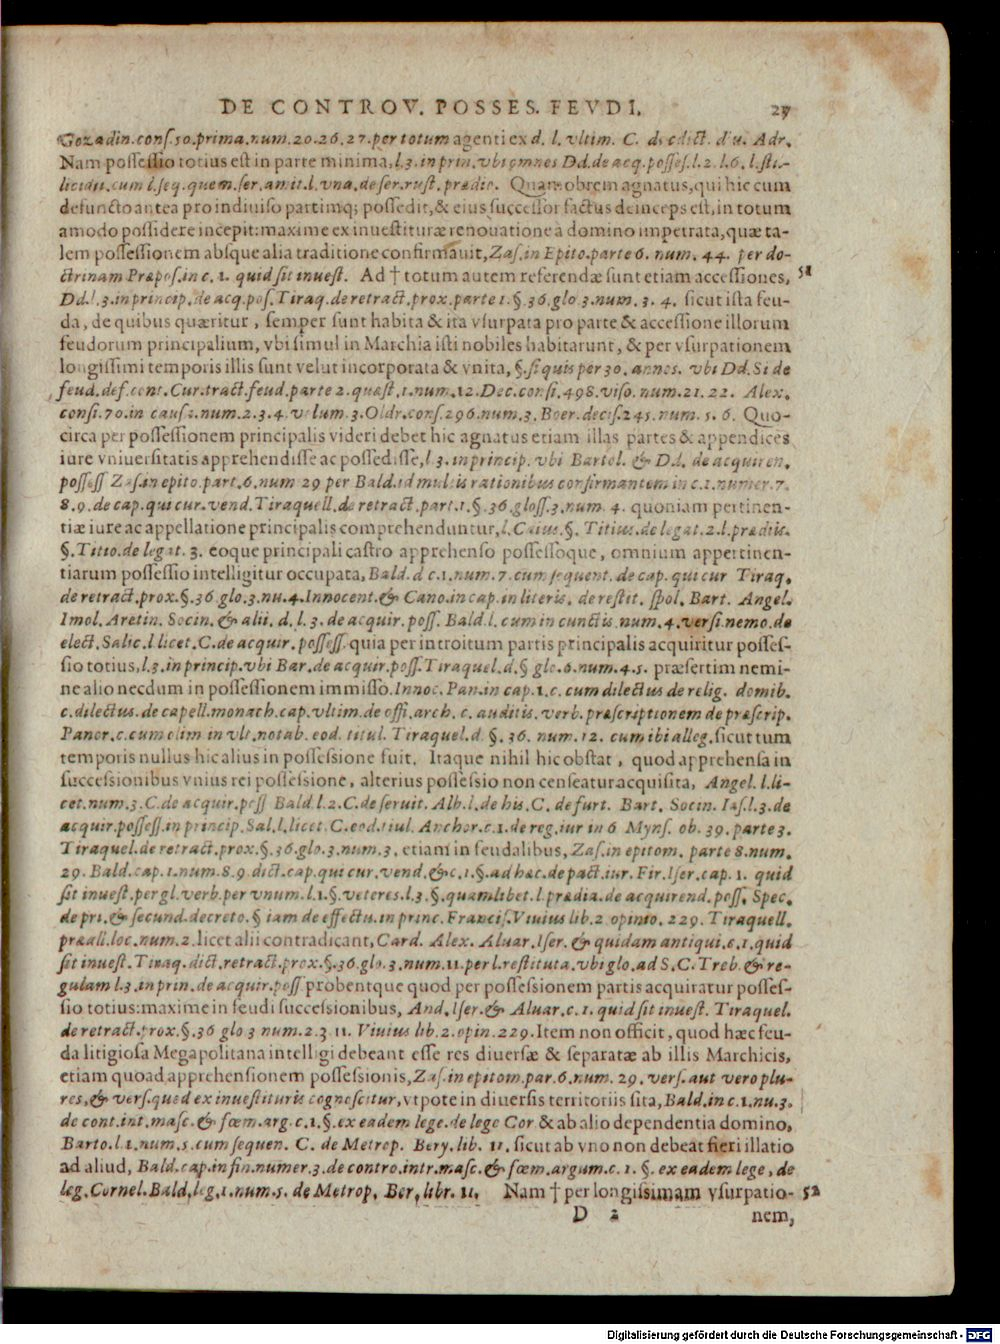 DE CONTROV. POSSES. FEVDI. 27
Gozadin.cons.50.prima.num.20.26.27.per totum agenti ex d. l. vltim. C. de edict. diu. Adr.
Nam possessio totius est in parte minima, l.3.in prin.vbi omnes Dd.de acq.posses.l.2.l.6.l.sti-
licidii.cum l.seq.quem.ser.amit.l.vna.de ser.rust.prædio. Quamobrem agnatus, qui hic cum
defuncto antea pro indiuiso partimq; possedit, & eius successor factus deinceps est, in totum
amodo possidere incepit: maxime ex inuestituræ renouatione à domino impetrata, quæ ta-
lem possessionem absque alia traditione confirmauit, Zas.in Epito.parte 6. num. 44. per do-
ctrinam Præpos.in c. 1. quid sit inuest. Ad † totum autem referendæ sunt etiam accessiones, 51
Dd.l.3.in princip.de acq.pos.Tiraq.de retract.prox.parte 1.§.36.glo 3.num. 3. 4. sicut ista feu-
da, de quibus quæritur, semper sunt habita & ita vsurpata pro parte & accessione illorum
feudorum principalium, vbi simul in Marchia isti nobiles habitarunt, & per vsurpationem
longissimi temporis illis sunt velut incorporata & vnita, §.si quis per 30. annos. vbi Dd.Si de
feud.def.cont.Cur.tract.feud.parte 2.quæst.1.num.12.Dec.consi.498.viso.num.21.22. Alex.
consi.70.in causa.num.2.3.4.volum.3.Oldr.cons.296.num.3.Boer.decis.245.num. 5. 6. Quo-
circa per possessionem principalis videri debet hic agnatus etiam illas partes & appendices
iure vniuersitatis apprehendisse ac possedisse, l 3. in princip. vbi Bartol. & Dd. de acquiren.
possess Zas.in epito.part.6.num 29 per Bald.id multis rationibus confirmantem in c.1.numer.7.
8.9.de cap.qui cur.vend.Tiraquell.de retract.part.1.§.36.gloss.3.num. 4. quoniam pertinen-
tiæ iure ac appellatione principalis comprehenduntur, l.Caius.§. Titius.de legat.2.l.prædiis.
§.Titio.de legat. 3. eoque principali castro apprehenso possessoque, omnium appertinen-
tiarum possessio intelligitur occupata, Bald.d c.1.num.7.cum sequent.de cap.qui cur Tiraq.
de retract.prox.§.36.glo.3.nu.4.Innocent.& Cano.in cap.in literis. de restit. spol. Bart. Angel.
Imol. Aretin. Socin. & alii. d. l. 3. de acquir. poss. Bald.l. cum in cunctis.num.4.versi.nemo.de
elect.Salic.l licet.C.de acquir.possess. quia per introitum partis principalis acquiritur posses-
sio totius, l.3.in princip.vbi Bar.de acquir.poss.Tiraquel.d.§ glo.6.num.4.5. præsertim nemi-
ne alio necdum in possessionem immisso.Innoc. Pan.in cap.1.c.cum dilectus de relig. domib.
c.dilectus.de capell.monach.cap.vltim.de offi.arch. c. auditis. verb.præscriptionem de præscrip.
Panor.c.cum olim in vlt.notab. eod. titul. Tiraquel.d. §. 36. num.12. cum ibi alleg. sicut tum
temporis nullus hic alius in possessione fuit. Itaque nihil hic obstat, quod apprehensa in
successionibus vnius rei possessione, alterius possessio non censeatur acquisita, Angel. l.li-
cet.num.3.C.de acquir.poss Bald.l.2.C.de seruit. Alb.l.de his.C.de furt. Bart. Socin. Ias.l.3.de
acquir.possess.in princip.Sal.l.licet.C.eod.titul. Anchor.c.1.de reg.iur in 6 Myns. ob. 39. parte 3.
Tiraquel.de retract.prox.§.36.glo.3.num.3. etiam in feudalibus, Zas.in epitom. parte 8.num.
29. Bald.cap.1.num.8.9.dict.cap.qui cur.vend.& c.1.§.ad hæc.de pact.iur. Fir.Iser.cap. 1. quid
sit inuest.per gl.verb.per vnum.l.1.§.veteres.l.3.§.quamlibet.l.prædia.de acquirend.poss. Spec.
de pri.& secund.decreto.§ iam de effectu.in princ. Francis.Viuius lib.2 opinio.229. Tiraquell.
præall.loc.num.2. licet alii contradicant, Card. Alex. Aluar. Iser. & quidam antiqui.c.1.quid
sit inuest.Tiraq.dict.retract.prox.§.36.glo.3.num.11.per l.restituta.vbi glo.ad S.C.Treb.& re-
gulam l.3.in prin.de acquir.poss probentque quod per possessionem partis acquiratur posses-
sio totius: maxime in feudi successionibus, And.Iser.& Aluar.c.1.quid sit inuest. Tiraquel.
de retract.prox.§.36 glo 3 num.2.3.11. Viuius lib.2.opin.229. Item non officit, quod hæc feu-
da litigiosa Megapolitana intelligi debeant esse res diuersæ & separatæ ab illis Marchicis,
etiam quoad apprehensionem possessionis, Zas.in epitom.par.6.num. 29. vers.aut vero plu-
res,& vers.quod ex inuestituris cognoscitur, vtpote in diuersis territoriis sita, Bald.in c.1.nu.3.
de cont.int.masc.& fœm.arg.c.1.§.ex eadem lege.de lege Cor & ab alio dependentia domino,
Barto.l.1.num.5.cum sequen. C. de Metrop. Bery.lib. 11. sicut ab vno non debeat fieri illatio
ad aliud, Bald.cap.in fin.numer.3.de contro.intr.masc.& fœm.argum.c.1. §. ex eadem lege, de
leg.Cornel.Bald.leg.1.num.5. de Metrop. Ber.libr. 11. Nam † per longissimam vsurpatio- 52
D 2 nem,
Digitalisierung gefördert durch die Deutsche Forschungsgemeinschaft - DFG